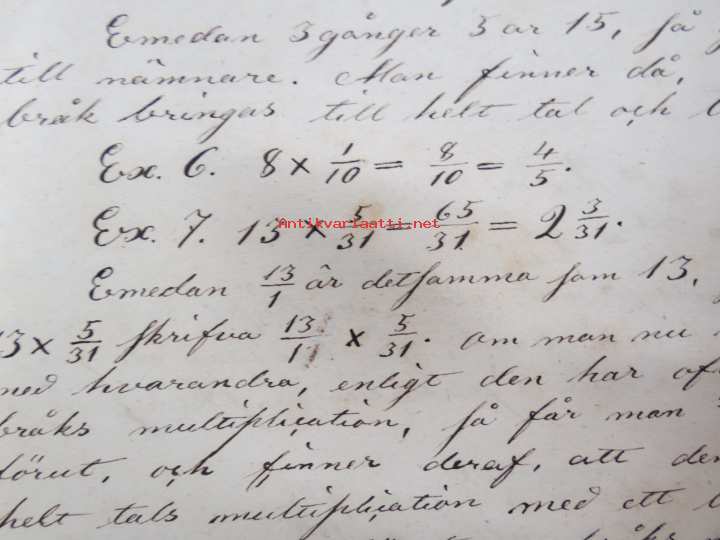 Emedan 3 gånger 5 är 15, så
till nämnare. Man finner då,
bråk bringas till helt tal och
Ex. 6. 8 × 1/10 = 8/10 = 4/5.
Ex. 7. 13 × 5/31 = 65/31 = 2 3/31.
Antikvariaatti.net
Emedan 13/1 är detsamma som 13,
13 × 5/31 skrifva 13/1 × 5/31. om man nu
med hvarandra, enligt den har
bråks multiplication, så får man
förut, och finner deraf, att den
helt tals multiplication med ett